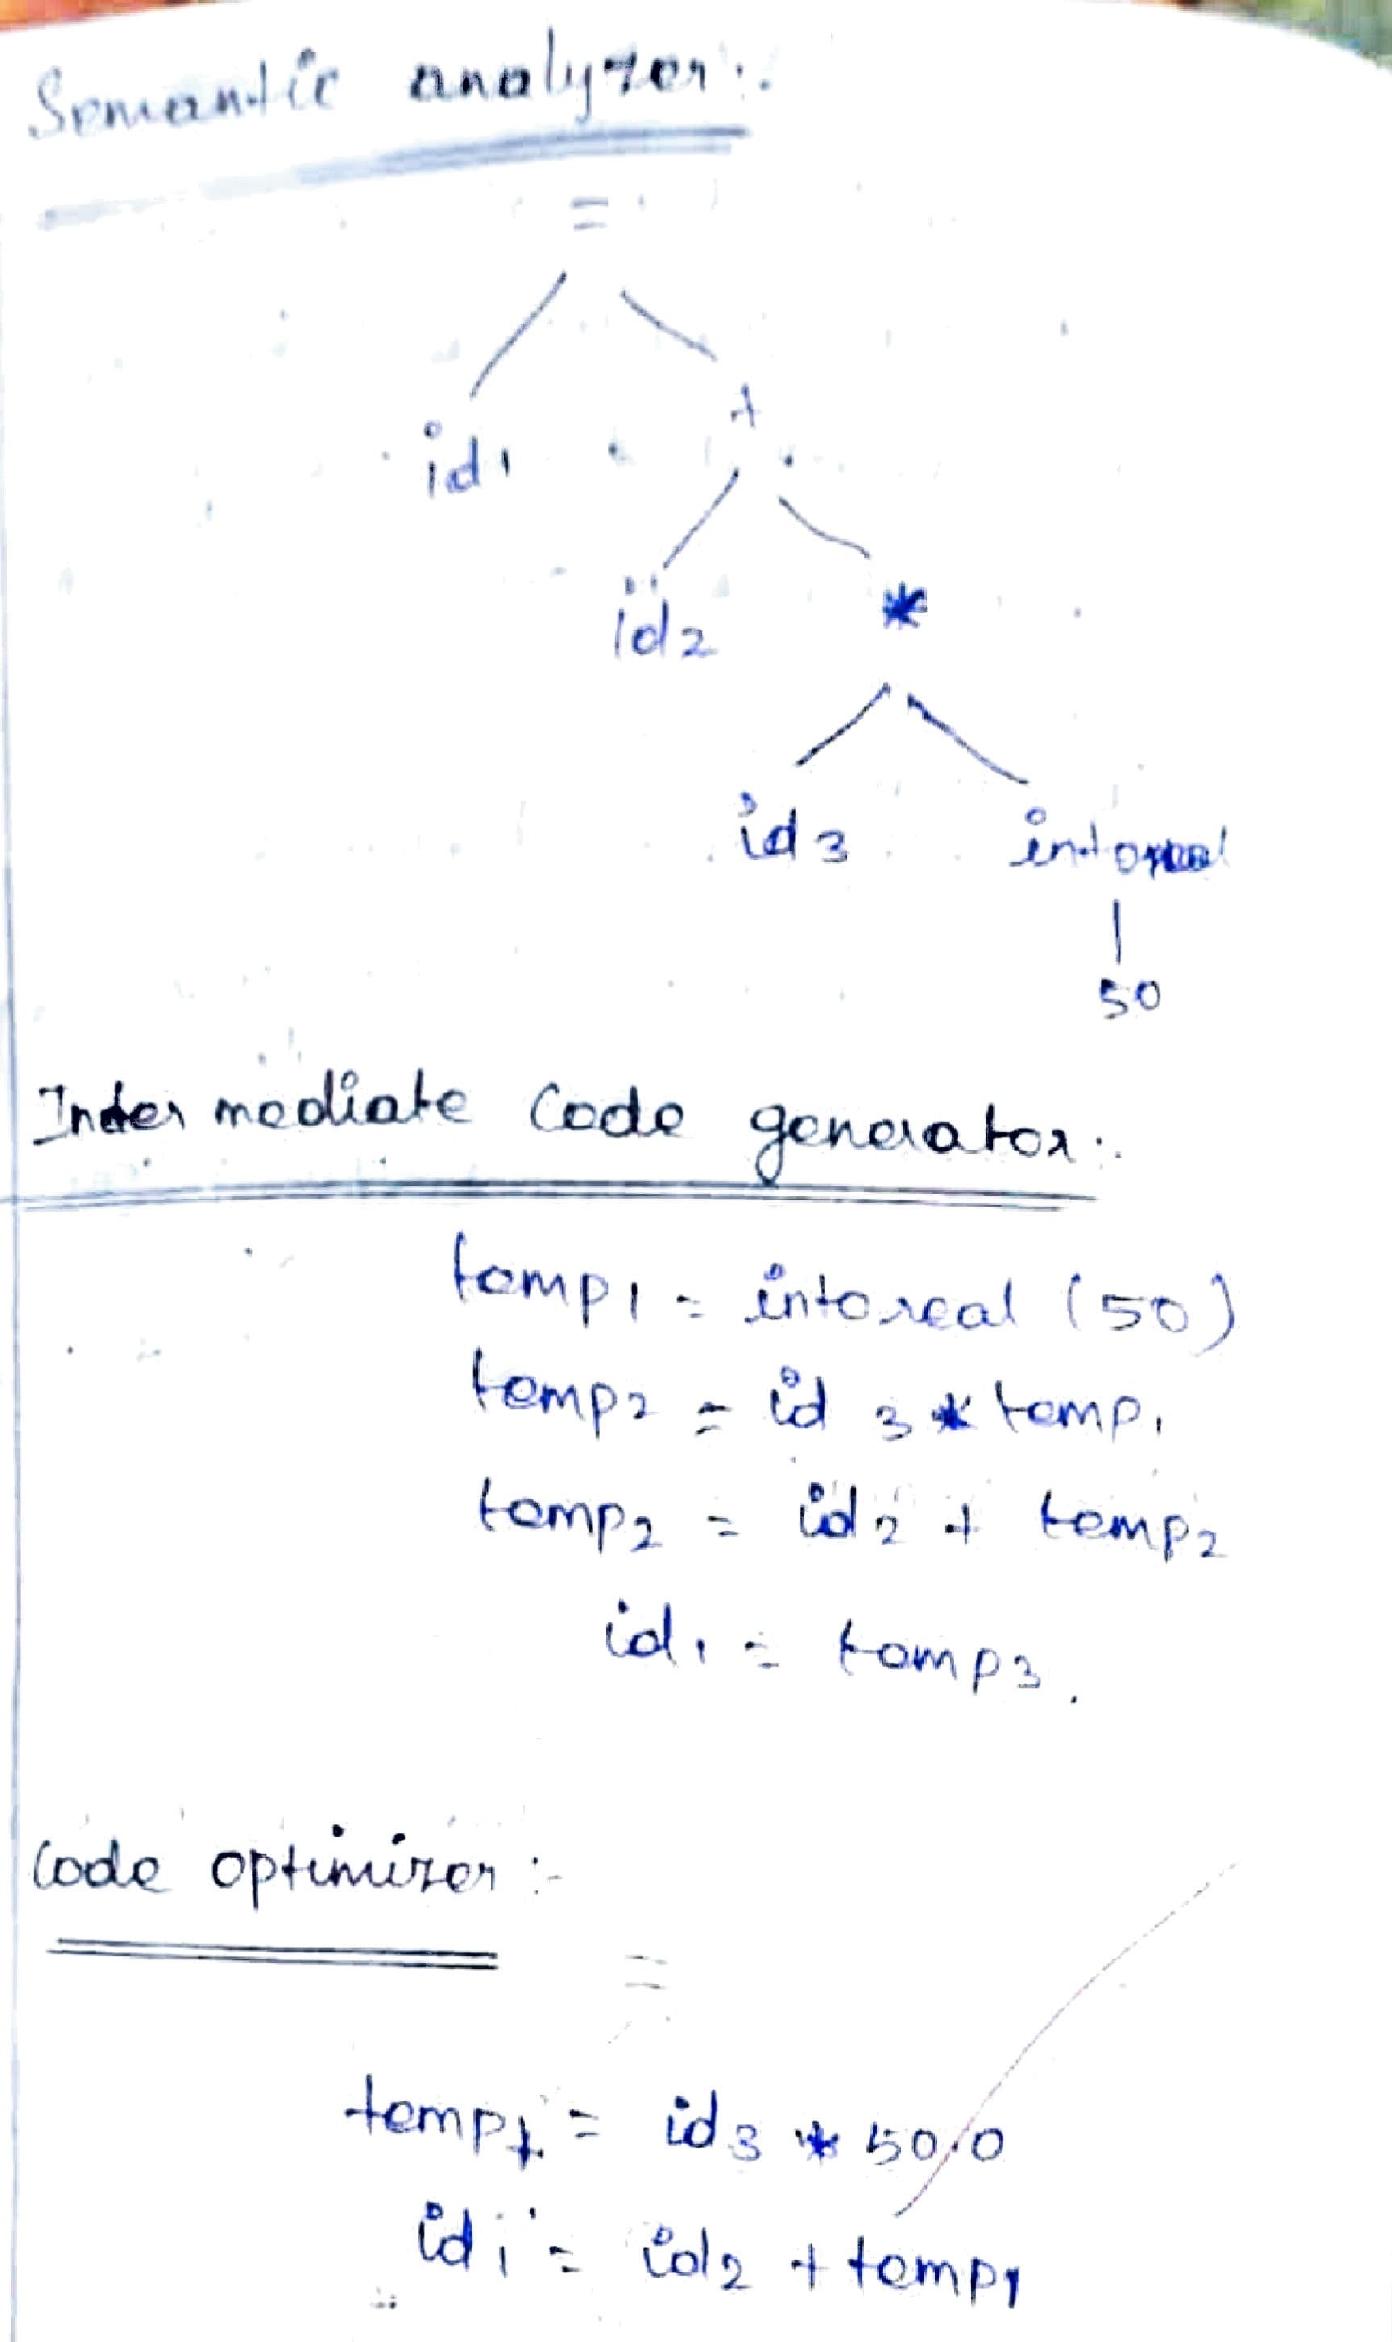 Semantic analyzer :-
=
id1 +
id2 *
id3 intoreal
50
Intermediate Code generator :-
temp1 = intoreal (50)
temp2 = id 3 * temp1
temp2 = id2 + temp2
id1 = temp3.
Code optimizer :-
=
temp1 = id3 * 50.0
id1 = id2 + temp1